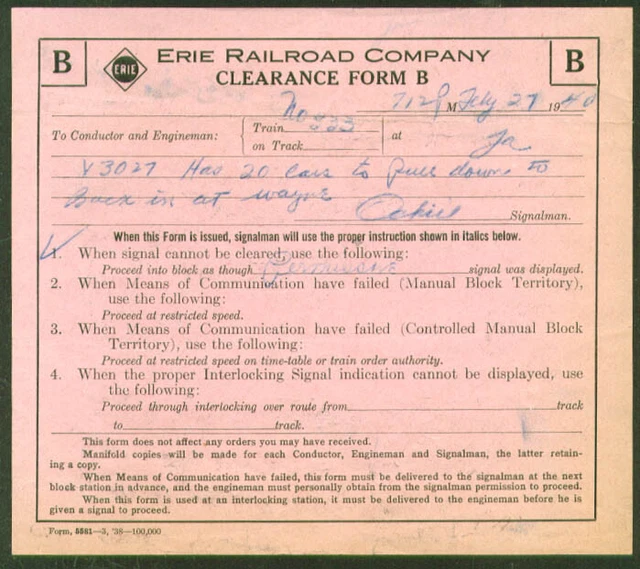 B ERIE ERIE RAILROAD COMPANY B
CLEARANCE FORM B
712 P M Feb 27 1940
To Conductor and Engineman: Train No 833 at Ja
on Track
V3027 Has 20 cars to pull down to
Back in at wayne
Signalman.
When this Form is issued, signalman will use the proper instruction shown in italics below.
1. When signal cannot be cleared, use the following:
Proceed into block as though Permissive signal was displayed.
2. When Means of Communication have failed (Manual Block Territory),
use the following:
Proceed at restricted speed.
3. When Means of Communication have failed (Controlled Manual Block
Territory), use the following:
Proceed at restricted speed on time-table or train order authority.
4. When the proper Interlocking Signal indication cannot be displayed, use
the following:
Proceed through interlocking over route from track
to track.
This form does not affect any orders you may have received.
Manifold copies will be made for each Conductor, Engineman and Signalman, the latter retain-
ing a copy.
When Means of Communication have failed, this form must be delivered to the signalman at the next
block station in advance, and the engineman must personally obtain from the signalman permission to proceed.
When this form is used at an interlocking station, it must be delivered to the engineman before he is
given a signal to proceed.
Form, 5581—3, '38—100,000